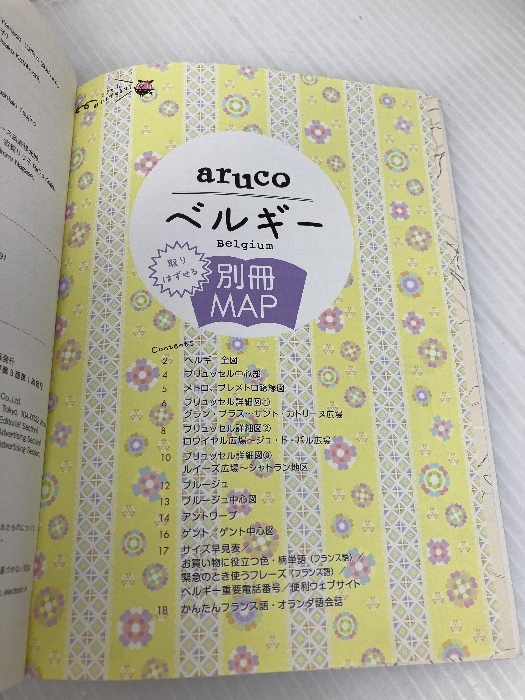 aruco
ベルギー
Belgium
取り
はずせる
別冊
MAP
Contents
2 ベルギー全図
4 ブリュッセル中心部
5 メトロ、プレメトロ路線図
6 ブリュッセル詳細図①
グラン・プラス〜サント・カトリーヌ広場
8 ブリュッセル詳細図②
ロワイヤル広場〜ジュ・ド・バル広場
10 ブリュッセル詳細図③
ルイーズ広場〜シャトラン地区
12 ブルージュ
13 ブルージュ中心図
14 アントワープ
16 ゲント／ゲント中心図
17 サイズ早見表／
お買い物に役立つ色・柄単語（フランス語）／
緊急のとき使うフレーズ（フランス語）／
ベルギー重要電話番号／便利ウェブサイト
18 かんたんフランス語・オランダ語会話
Co., Ltd.
Editorial Section
Advertising Section
Advertising Section